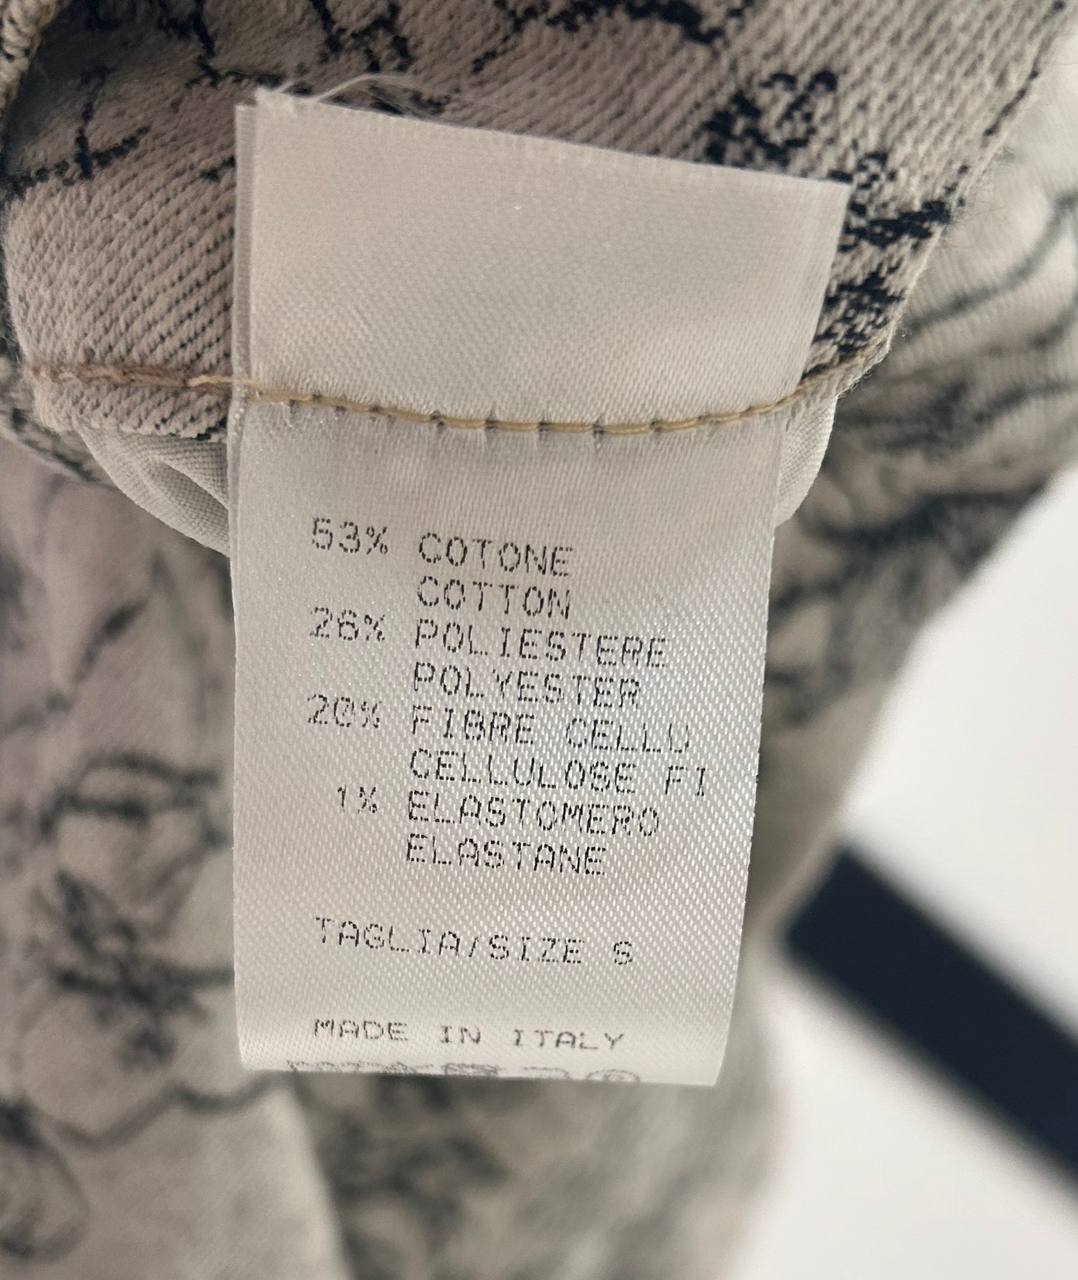 53% COTONE
COTTON
26% POLIESTERE
POLYESTER
20% FIBRE CELLU
CELLULOSE FI
1% ELASTOMERO
ELASTANE
TAGLIA/SIZE S
MADE IN ITALY